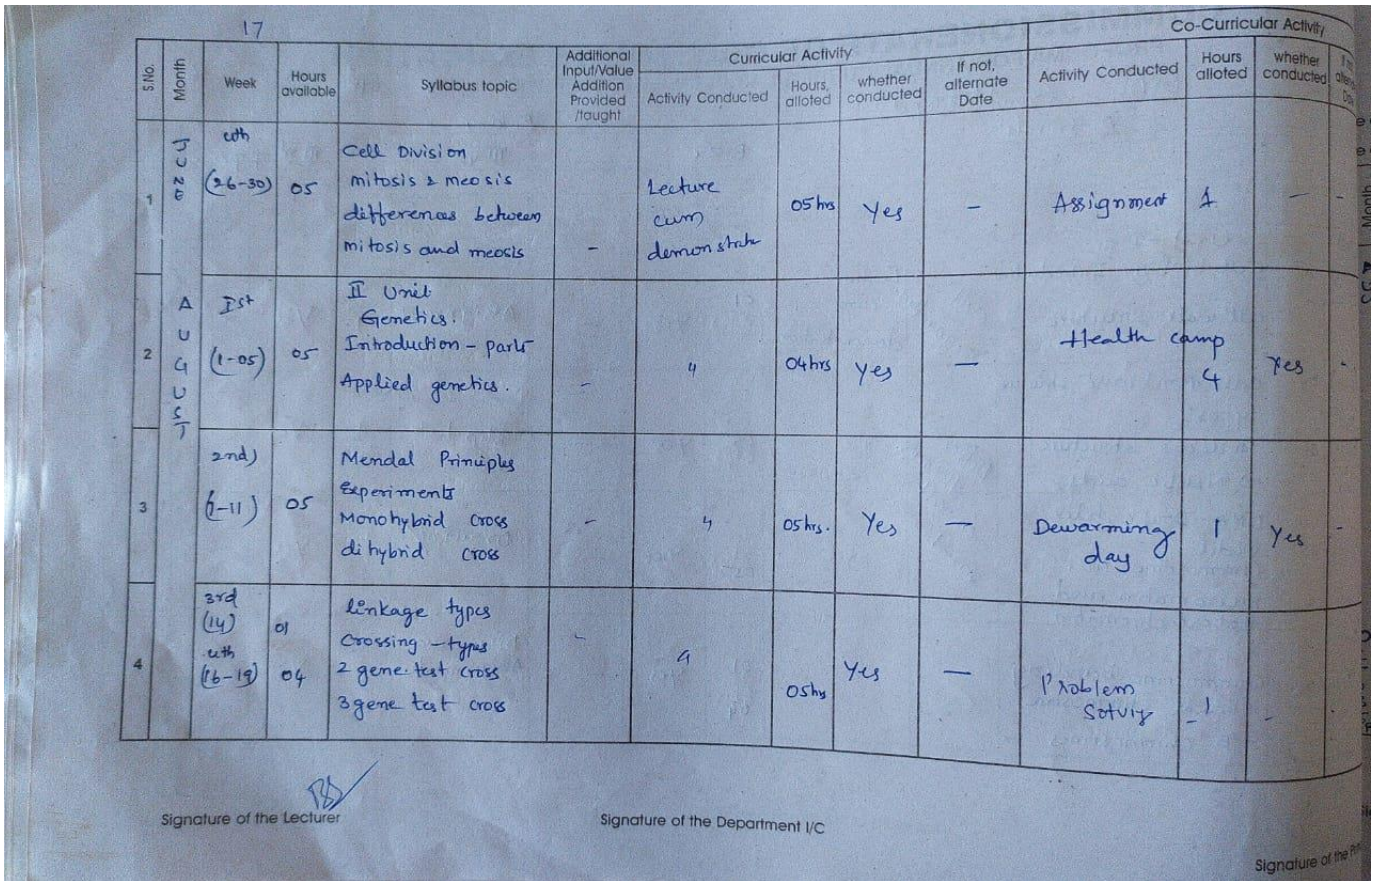 17
Co-Curricular Activity
S.No.
Month
Week
Hours available
Syllabus topic
Additional Input/Value Addition Provided /taught
Curricular Activity
Activity Conducted
Hours, alloted
whether conducted
If not, alternate Date
Activity Conducted
Hours alloted
whether conducted
1
(26-30)
05
Cell Division
mitosis & meosis
differences between
mitosis and meosis
-
Lecture
cum
05 hrs
Yes
-
Assignment
1
-
-
2
AUGUST
Ist
(1-05)
05
II Unit
Genetics.
Introduction - parts
Applied genetics.
-
"
04 hrs
Yes
-
Health camp
4
Yes
-
3
2nd
05
Mendal Principles
Experiments
Monohybrid cross
di hybrid cross
-
"
05 hrs.
Yes
-
Dewarming
day
1
Yes
-
4
3rd
(14)
01
(16-19)
04
linkage types
Crossing - types
2 gene test cross
3 gene test cross
-
05 hrs
Yes
-
Problem
1
-
-
Signature of the Lecturer
Signature of the Department I/C
Signature of the